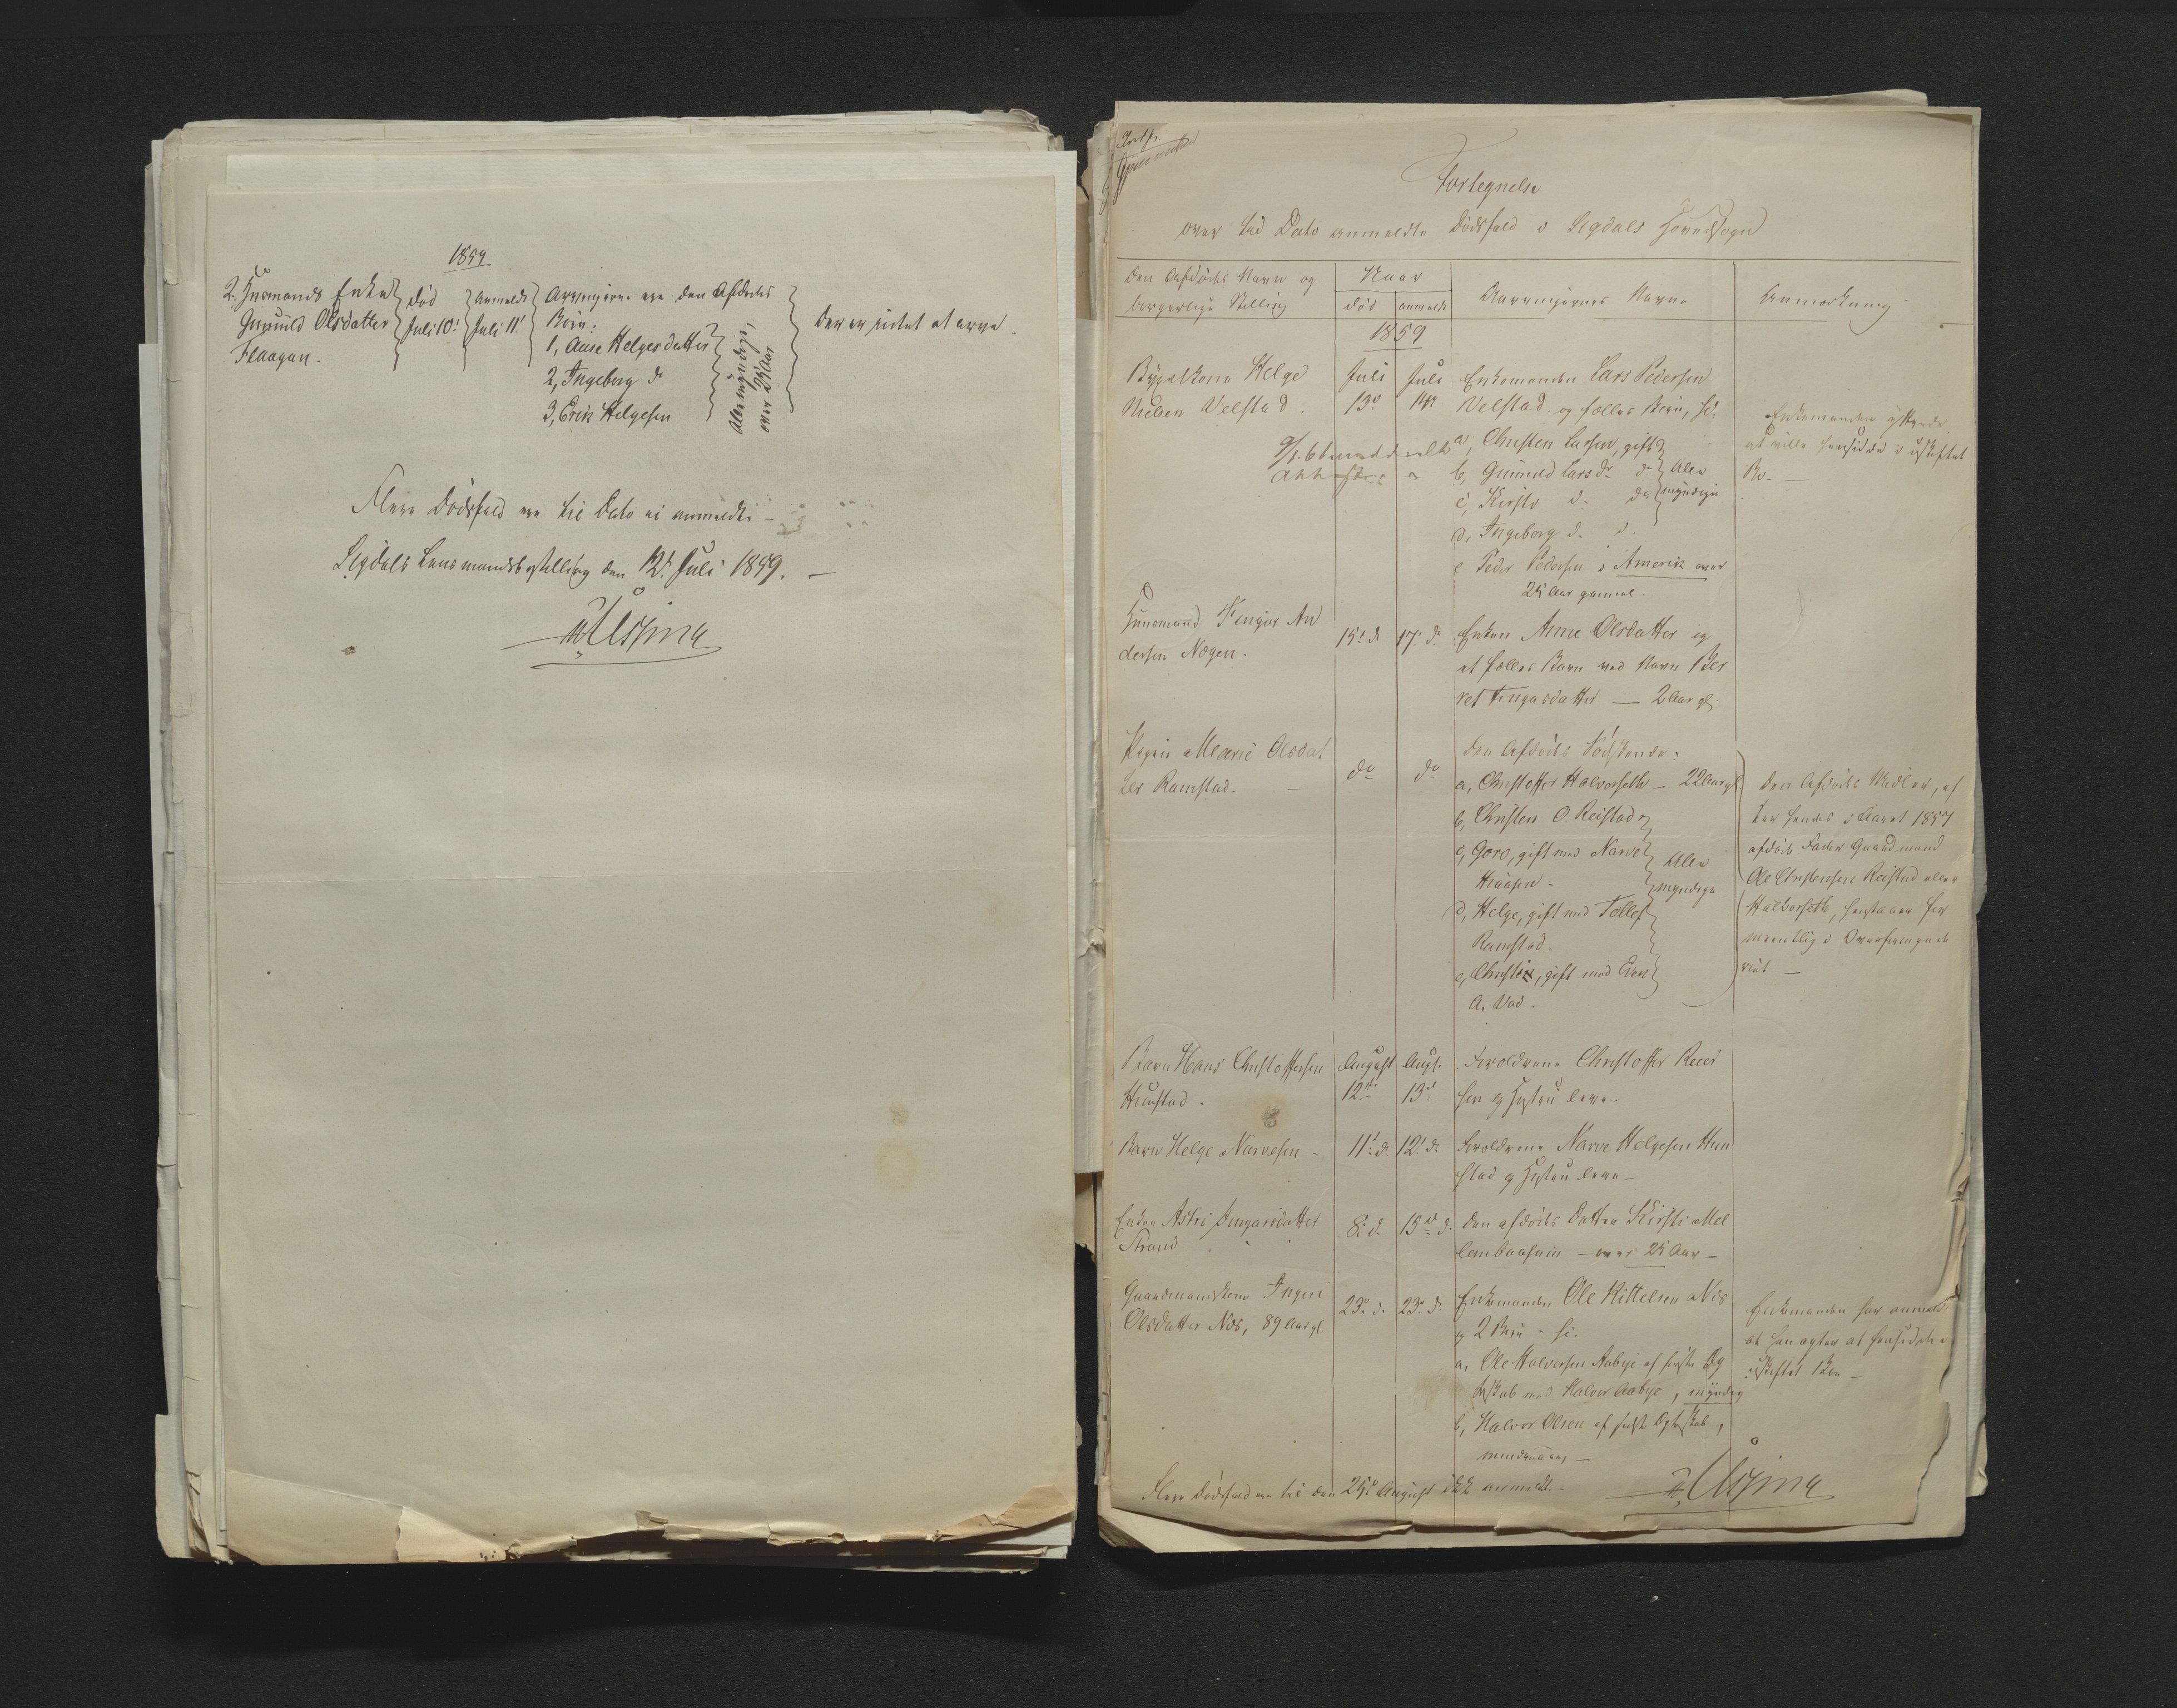 1859
2. Husmands Enke
Gunild Olsdatter
Flaagan.
død
Juli 10.
Anmeldt
Juli 11.
Arvingerne ere den Afdødes
Børn:
1, Anne Helgesdatter
2, Ingeborg do
3, Erik Helgesen
Alle myndige,
over 25 Aar
Der er intet at arve.
Flere Dødsfald ere til Dato ei anmeldte –
Sigdals Lensmandsbestilling den 12. Juli 1859. –
Fortegnelse
over til Dato anmeldte Dødsfald i Sigdals Hovedsogn
Den Afdødes Navn og
borgerlige Stilling
Naar
død
anmeldt
Arvingernes Navne
Anmærkning
1859
Helge
Nielsen Velstad.
Juli
13.
Juli
14.
Enkemanden Lars Pedersen
Velstad og fælles Børn,
a, Christen Larsen, gift
b, Gunild Larsdr do
c, Kirsti d. do
d, Ingeborg d. d.
e Peder Pedersen i Amerik over
25 Aar gammel.
Alle
myndige
Enkemanden
at ville hensidde i uskiftet
Bo. –
Huusmand Tengar An
dersen Nogen.
15. d.
17. do
Enken Anne Olsdatter og
et fælles Barn ved Navn Ber
ret Tengasdatter — 2 Aar gl.
Pigen Marie Olsdat
ter Ramstad. –
do
do
Den Afdødes Sødskende:
a, Christoffer Halvorseth – 22 Aar gl
b, Christen O. Reistad
c, Goro, gift med Narve
Hraasen –
d, Helge, gift med Tollef
Ramstad.
e, Christi, gift med Even
A. Vad.
Alle
myndige
Den Afdødes Midler, ef
ter hendes i Aaret 1857
afdøde Fader Gaardmand
Ole Christensen Reistad eller
Halvorseth, henstaaer for
mentlig i Overformynde
riet –
Barn Hans Christoffersen
Hunstad.
August
12.
Aug.
13.
Forældrene Christoffer Reier
sen og Hustru leve –
Barn Helge Narvesen –
11. d.
12. do
Forældrene Narve Helgesen Hun
stad og Hustru leve –
Enken Astri Ingarsdatter
Strand
8. d.
13. d.
Den afdødes Datter Kirsti Mel
lembraaten – over 25 Aar –
Gaardmandskone Ingeri
Olsdatter Nos, 89 Aar gl
23. d.
23. d.
Enkemanden Ole Kittelsen Nos
og 2 Børn –
a, Ole Halvorsen Aabye af første Æg
teskab med Halvor Aabye, myndig
b, Halvor Olsen af sidste Ægteskab,
Enkemanden har anmeldt
at han agter at hensidde i
uskiftet Boe –
Flere Dødsfald ere til den 25. August ikke anmeldt. –